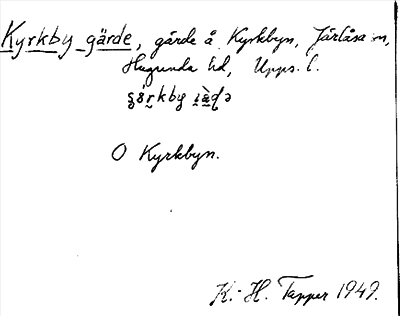 Kyrkby gärde, gärde å Kyrkbyn, Järlåsa sn,
Hagunda hd, Upps. l.
O Kyrkbyn.
K.-H. Tapper 1949.